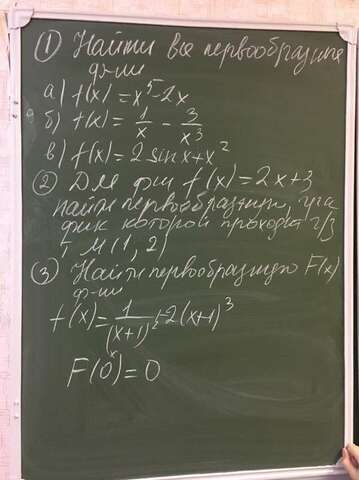 ① Найти все первообразные
ф-ии
а) f(x) = x⁵ - 2x
б) f(x) = 1/x - 3/x³
в) f(x) = 2 sin x + x²
② Для фии f(x) = 2x + 3
найти первообразную,
фик которой проходит ч/з
т M(1, 2)
③ Найти первообразную F(x)
ф-ии
f(x) = 1/(x+1)² + 2(x+1)³
F(0) = 0